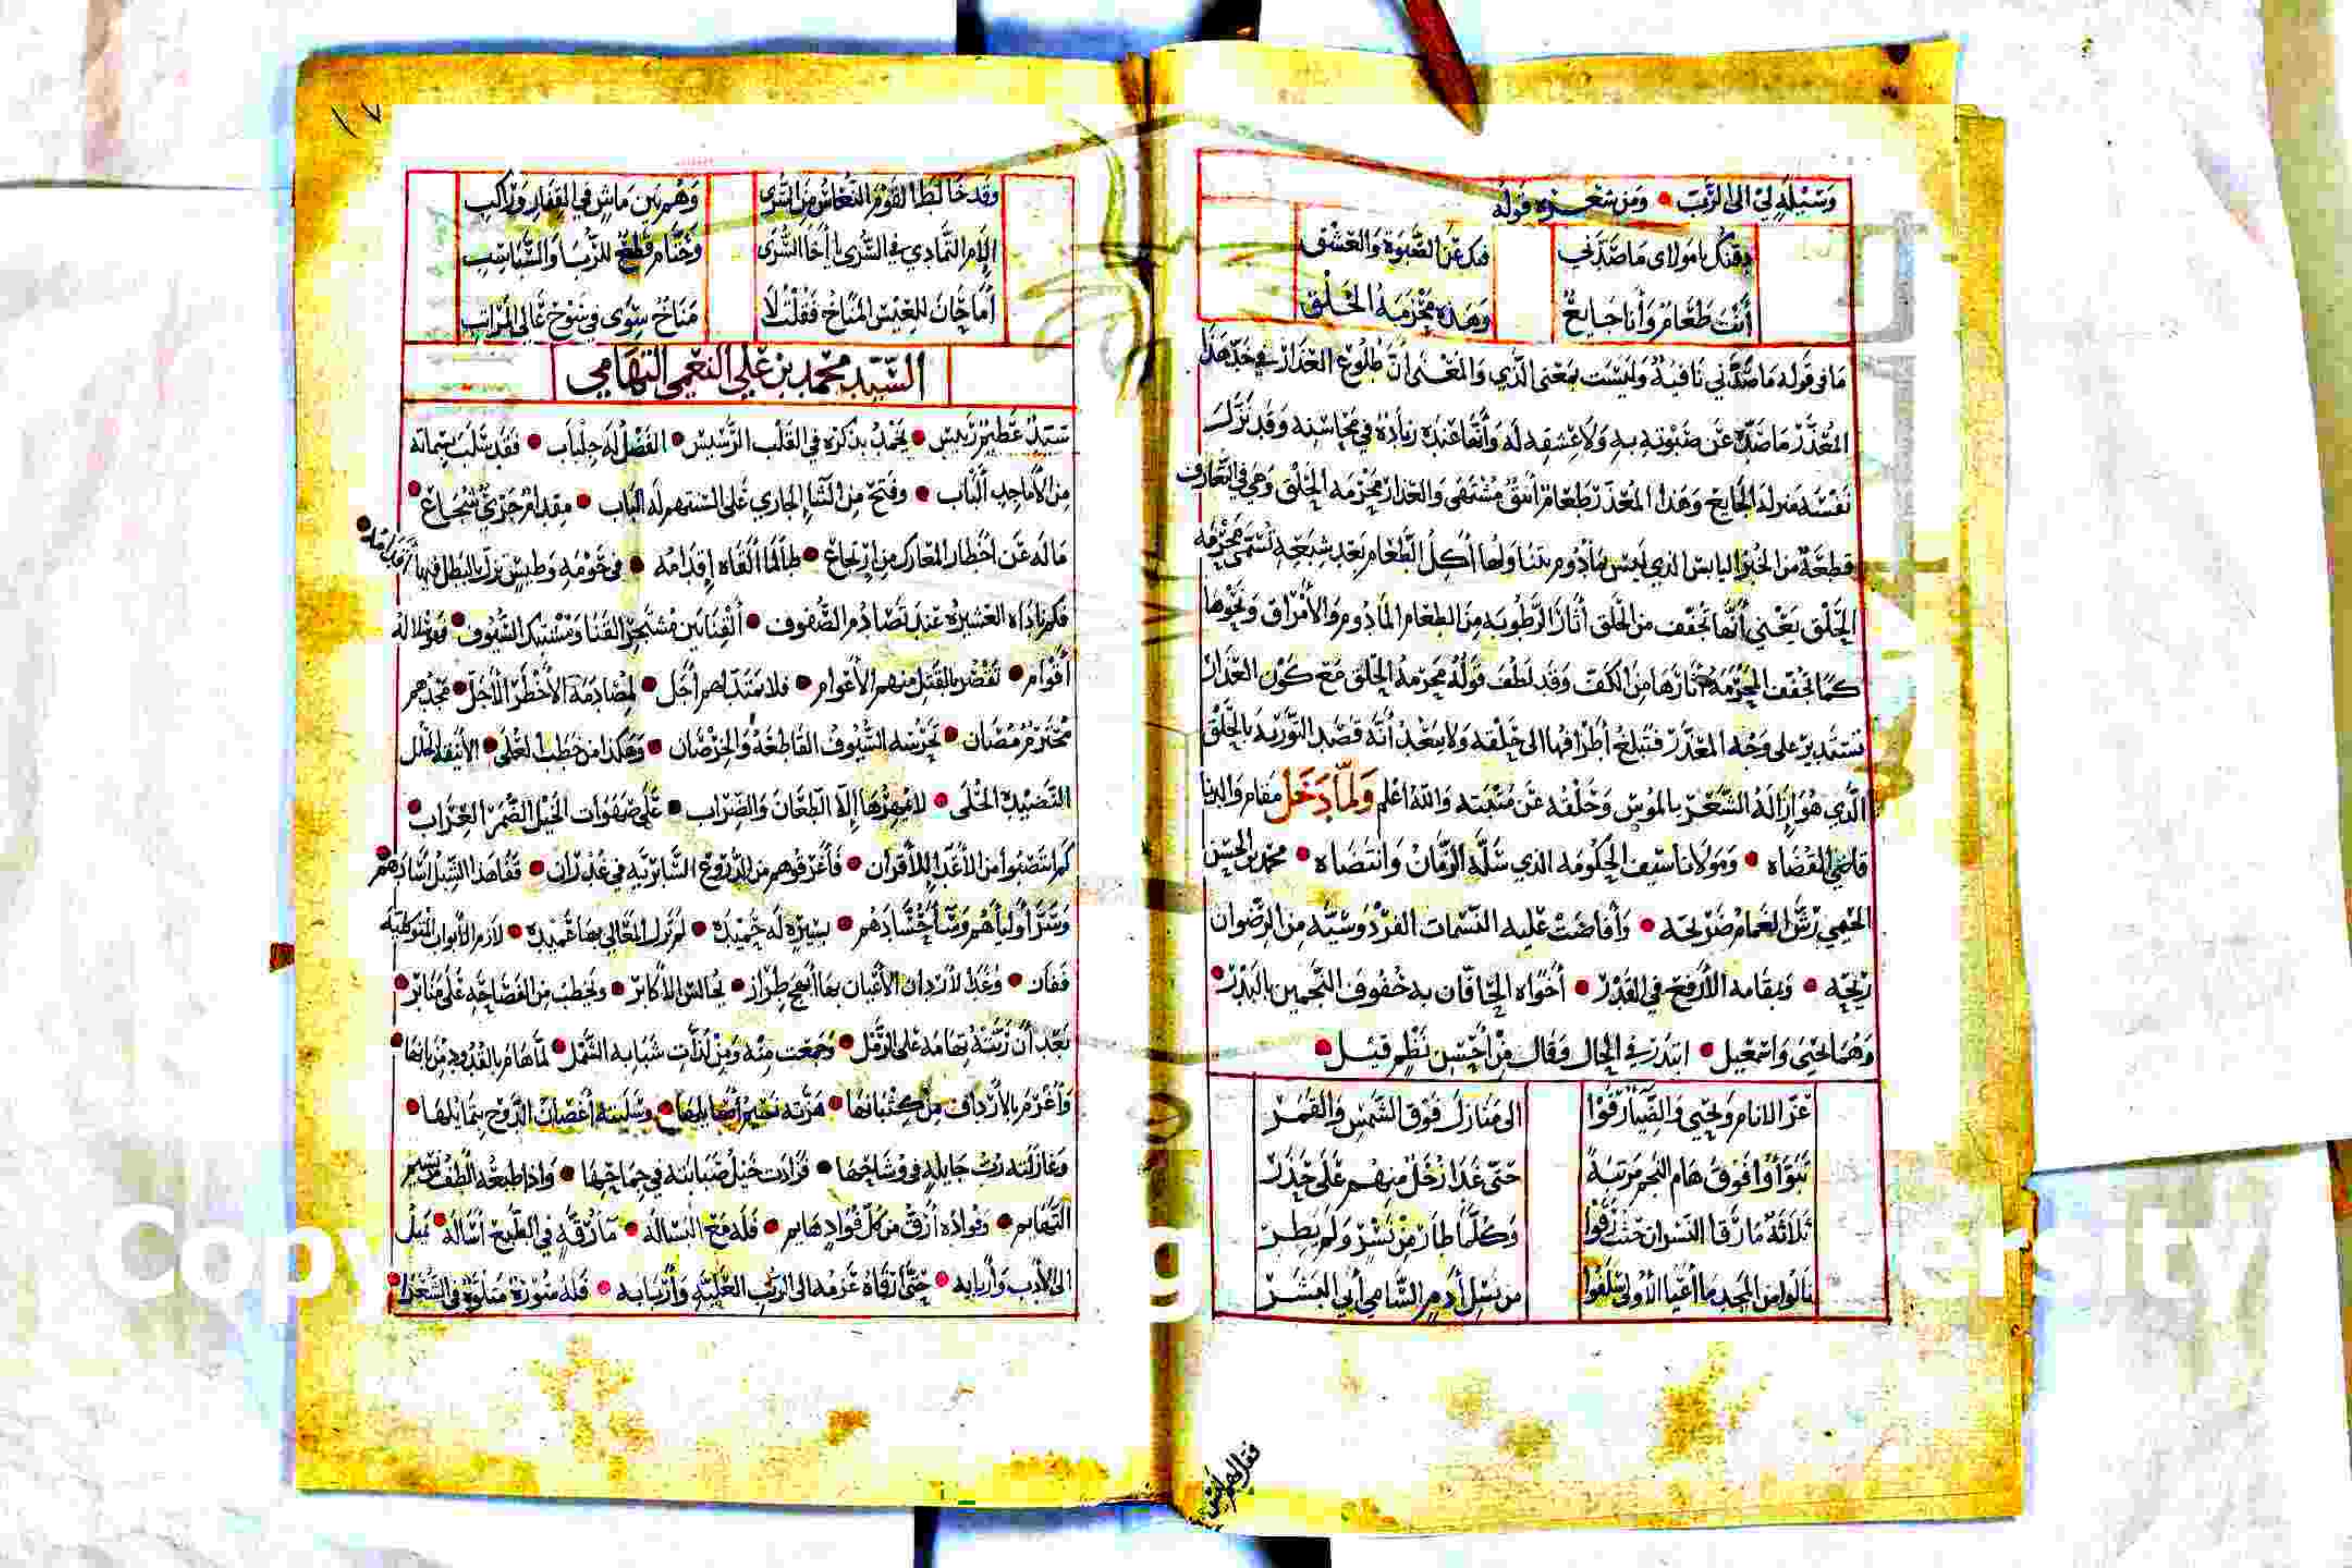 وسيلة لي الى الرتب ● ومن شعره قوله
ذقنك يا مولاى ما صدني فيك عن الصبوة والعشق
أنت طعام وأنا جايع وهذه محزمة الخلق
ما فى قوله ما صدني نافية وليست بمعنى الذي والمعنى ان طلوع العذار في خد هذا
المعذر ما صده عن صبوته به ولا عشقه له وأنها عنده زيادة في محاسنه وقد نزل
نفسه منزلة الجايع وهذا المعذر طعام أنيق مشتهى والعذار محزمة الحلق وهي في التعارف
قطعة من الخبز اليابس الذي ليس بمأدوم يتناولها آكل الطعام بعد شبعه تسمى محزمة
الحلق يعني أنها تجفف من الحلق آثار الرطوبة من الطعام المأدوم والأمراق ونحوها
كما تجفف المحزمة آثارها من الكف وقد لطف قوله محزمة الحلق مع كون العذار
تستدير على وجه المعذر فتبلغ أطرافها الى حلقه ولا يبعد أنه قصد التورية بالحلق
الذي هو ازالة الشعر بالموس وحلقه عن منبته والله اعلم ولما دخل مقام والدنا
قاضي القضاه ● ومولانا سيف الحكومة الذي سله الزمان وانتضاه ● محمد بن الحسن
الحيمي رش الغمام ضريحه ● وأفاضت عليه النسمات الفردوسية من الرضوان
ريحه ● وبمقامه الأرفع في القدر ● أخواه الحافان به خفوف النجمين بالبدر ●
وهما يحيى واسمعيل ● ابتدر في الحال فقال من احسن نظم قيل ●
عز الانام ويحيي والضيا رقوا الى منازل فوق الشمس والقمر
تبوأوا فوق هام النجم مرتبة حتى غدا زحل منهم على حذر
ثلاثة ما رقا النسران حيث رقوا وكلما طار من نسر ولم يطر
نالوا من المجد ما أعيا الأولى سلفوا من نسل أدم السامي أبي البشر
فقل لهم ليس
١٧
وقد خالط القوم النعاس من السرى وهم بين ماش في القفار وراكب
إلام التمادي في السرى يا أخا السرى وحتام قطع للربا والسباسب
أما حان للعيس المناخ فقلت لا مناخ سوى في سوح عالي المراتب
السيد محمد بن علي النعمي التهامي
سيد عطير رئيس ● يخمد بذكره في القلب الرسيس ● الفضل له جلباب ● فقد سلب بسماته
من الأماجد ألباب ● وفتح من الثنا الجاري على الستهم له الباب ● مقدام جرئ شجاع ●
ما له عن اخطار المعارك من ارتجاع ● طالما ألقاه إقدامه ● في حومة وطيس تزل بالبطل فيها أقدامه ●
فكم ناداه العشيرة عند تصادم الصفوف ● ألفنا بين مشتجر القنا ومشتبك السيوف ●
أقوام ● تقضر بالقتل منهم الأعوام ● فلا مبتدا لهم أجل ● لمصادمة الأخطر الأجل ● مجدهم
محترم مصان ● تحرسه السيوف القاطعة والخرصان ● وهكذا من خطب العلى ● الأنيقة الحلل
النضيدة الحلى ● لا يمهرها إلا الطعان والضراب ● على صهوات الخيل الضمر العراب ●
كم انتصبوا من الأعدا للأقران ● فأغرقوهم من الدروع السابرية في غدران ●
وسر أولياهم وسآ حسادهم ● بسيرة له حميدة ● لم تزل المعالي بها عميدة ● لازم الأبواب المتوكلية
ففاز ● وغدا لأردان الأعيان بها أبهج طراز ● يجالس الأكابر ● ويخطب من الفصاحة على منابر ●
بعد أن زينه تهامه على الرمل ● وجمعت منه ومن لذات شبابه الشمل ● لما هام بالقدود من بانها ●
وأغرم بالأرداف من كثبانها ● هزته بخير ● وسلبته أغصان الدوح بتمايلها ●
وغازلته رب حايلة في وشاحها ● فزادت خيل صبابته في جماحها ● واذا طبعه الطف نسيم
التهايم ● وفواده أرق من كل فواد هايم ● فله مع البسالة ● ما رقة في الطبع أساله ● يميل
الى الأدب وأربابه ● حتى ارقاه عزمه الى الرتب العلية وأربابه ● فله سورة متلوة في الشعرا ●